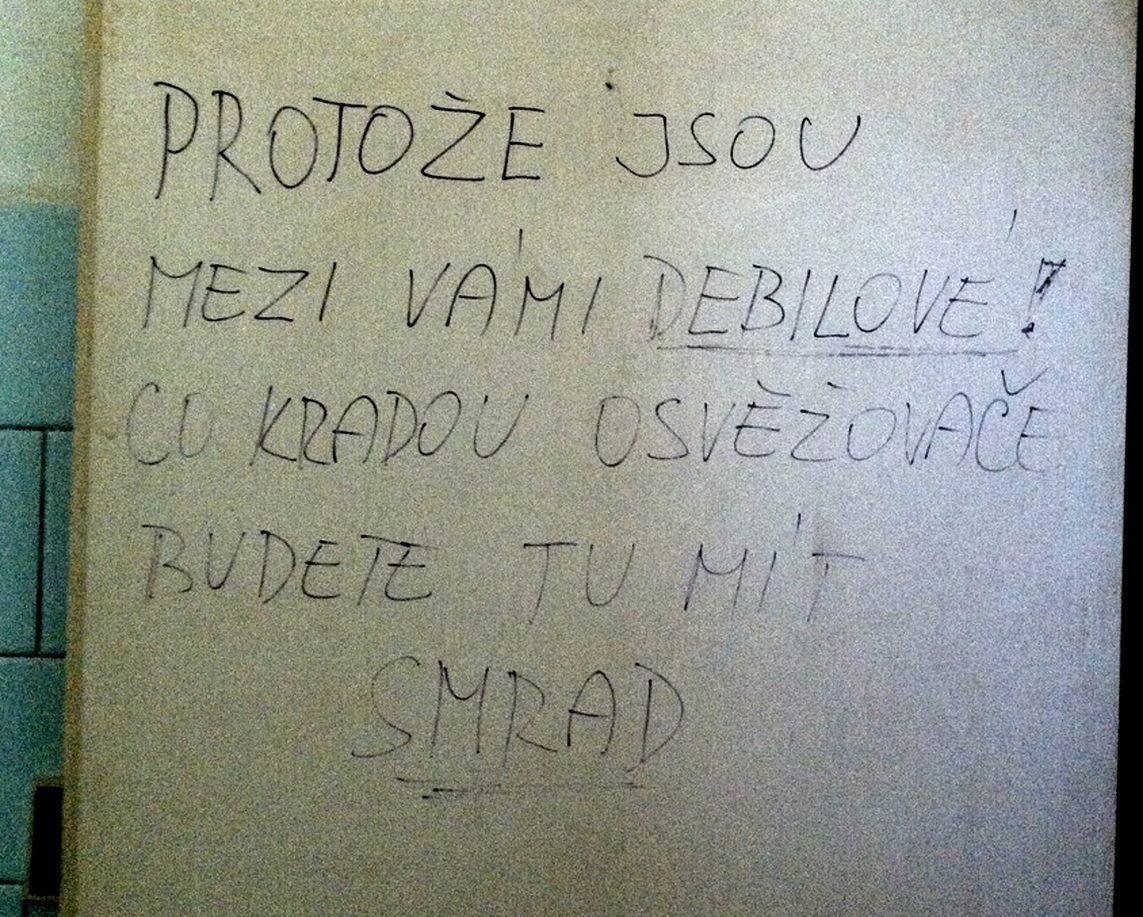 PROTOŽE JSOU
MEZI VÁMI DEBILOVÉ!
CO KRADOU OSVĚŽOVAČE
BUDETE TU MÍT
SMRAD